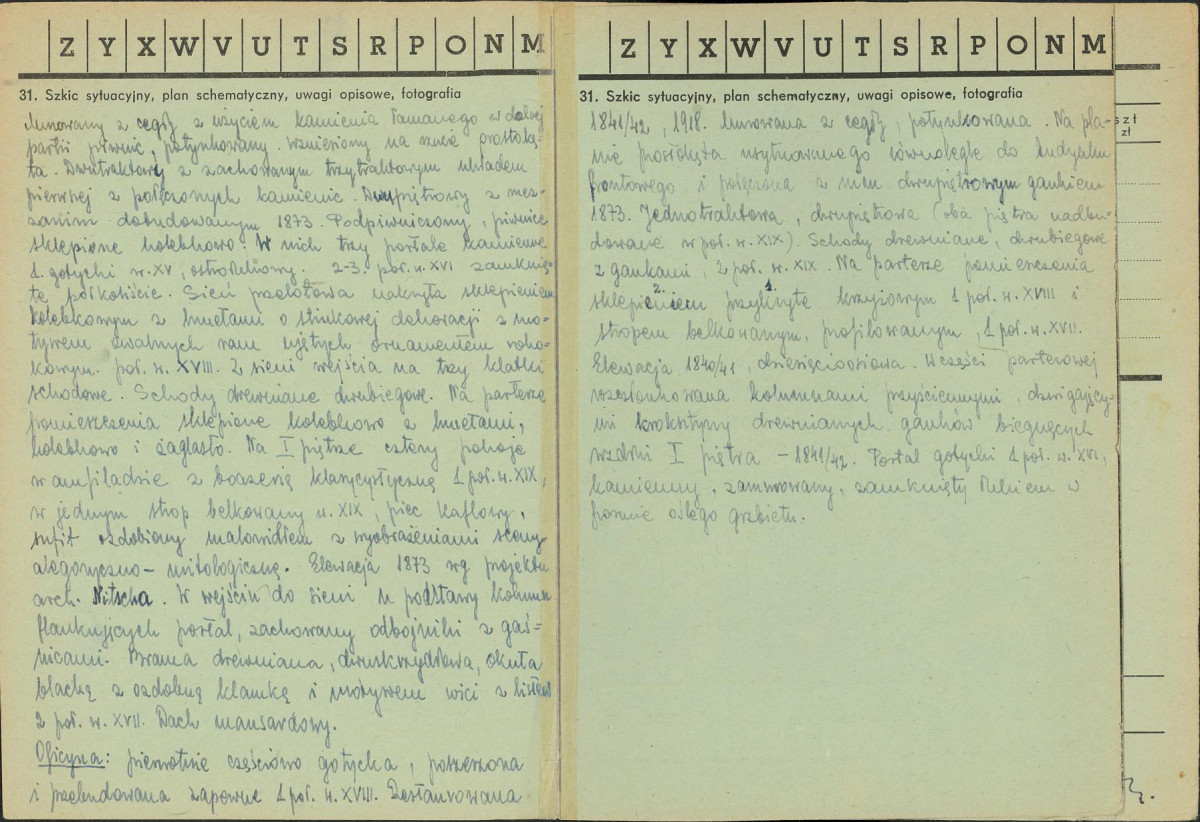 Z Y X W V U T S R P O N M
31. Szkic sytuacyjny, plan schematyczny, uwagi opisowe, fotografia
Murowany z cegły z użyciem kamienia łamanego w dolnej
partii piwnic, potynkowany. Wzniesiony na rzucie prostoką-
ta. Dwutraktowy z zachowanym trzytraktowym układem
pierwszej z połączonych kamienic. Dwupiętrowy z mez-
zaninem dobudowanym 1873. Podpiwniczony, piwnice
sklepione kolebkowo. W nich trzy portale kamienne
1. gotycki w. XV, ostrołukowy. 2-3. poł. w. XVI zamknię-
te półkoliście. Sień przelotowa nakryta sklepieniem
kolebkowym z lunetami o stiukowej dekoracji z mo-
tywem owalnych ram ujętych ornamentem roko-
kowym. poł. w. XVIII. Z sieni wejścia na trzy klatki
schodowe. Schody drewniane dwubiegowe. Na parterze
pomieszczenia sklepione kolebkowo z lunetami,
kolebkowo i żaglasto. Na I piętrze cztery pokoje
w amfiladzie z boazerią klasycystyczną 1 poł. w. XIX,
w jednym strop belkowany w. XIX, piec kaflowy,
sufit ozdobiony malowidłem z wyobrażeniami sceny
alegoryczno-mitologiczną. Elewacja 1873 wg projektu
arch. Nitscha. W wejściu do sieni u podstawy kolumn
flankujących portal, zachowany odbojniki z gaś-
nicami. Brama drewniana, dwuskrzydłowa, okuta
blachą z ozdobną klamką i motywem wici z liśćmi
2 poł. w. XVII. Dach mansardowy.
Oficyna: pierwotnie częściowo gotycka, poszerzona
i przebudowana zapewne 1 poł. w. XVIII. Restaurowana
Z Y X W V U T S R P O N M
31. Szkic sytuacyjny, plan schematyczny, uwagi opisowe, fotografia
1841/42, 1918. Murowana z cegły, potynkowana. Na pla-
nie prostokąta usytuowanego równolegle do budynku
frontowego i połączona z nim dwupiętrowym gankiem
1873. Jednotraktowa, dwupiętrowa (oba piętra nadbu-
dowane w poł. w. XIX). Schody drewniane, dwubiegowe
z gankami, 2 poł. w. XIX. Na parterze pomieszczenia
2. 1.
sklepieniem przykryte krzyżowym 1 poł. w. XVIII i
stropem belkowanym, profilowanym, 1 poł. w. XVII.
Elewacja 1840/41, dziesięcioosiowa. W części parterowej
rozczłonkowana kolumnami przyściennymi, dźwigający-
mi kroksztyny drewnianych ganków biegnących
wzdłuż I piętra - 1841/42. Portal gotycki 1 poł. w. XVI,
kamienny, zamurowany, zamknięty łukiem o
formie oślego grzbietu.
szt
zł